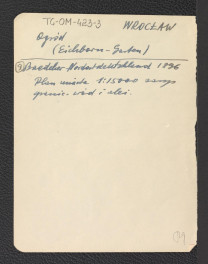 TG-OM-483-3 WROCŁAW
Ogród
(Eichborn-Garten)
Baedeker Nordostdeutschland 1896
Plan miasta 1:15000
granic. wód i alei.